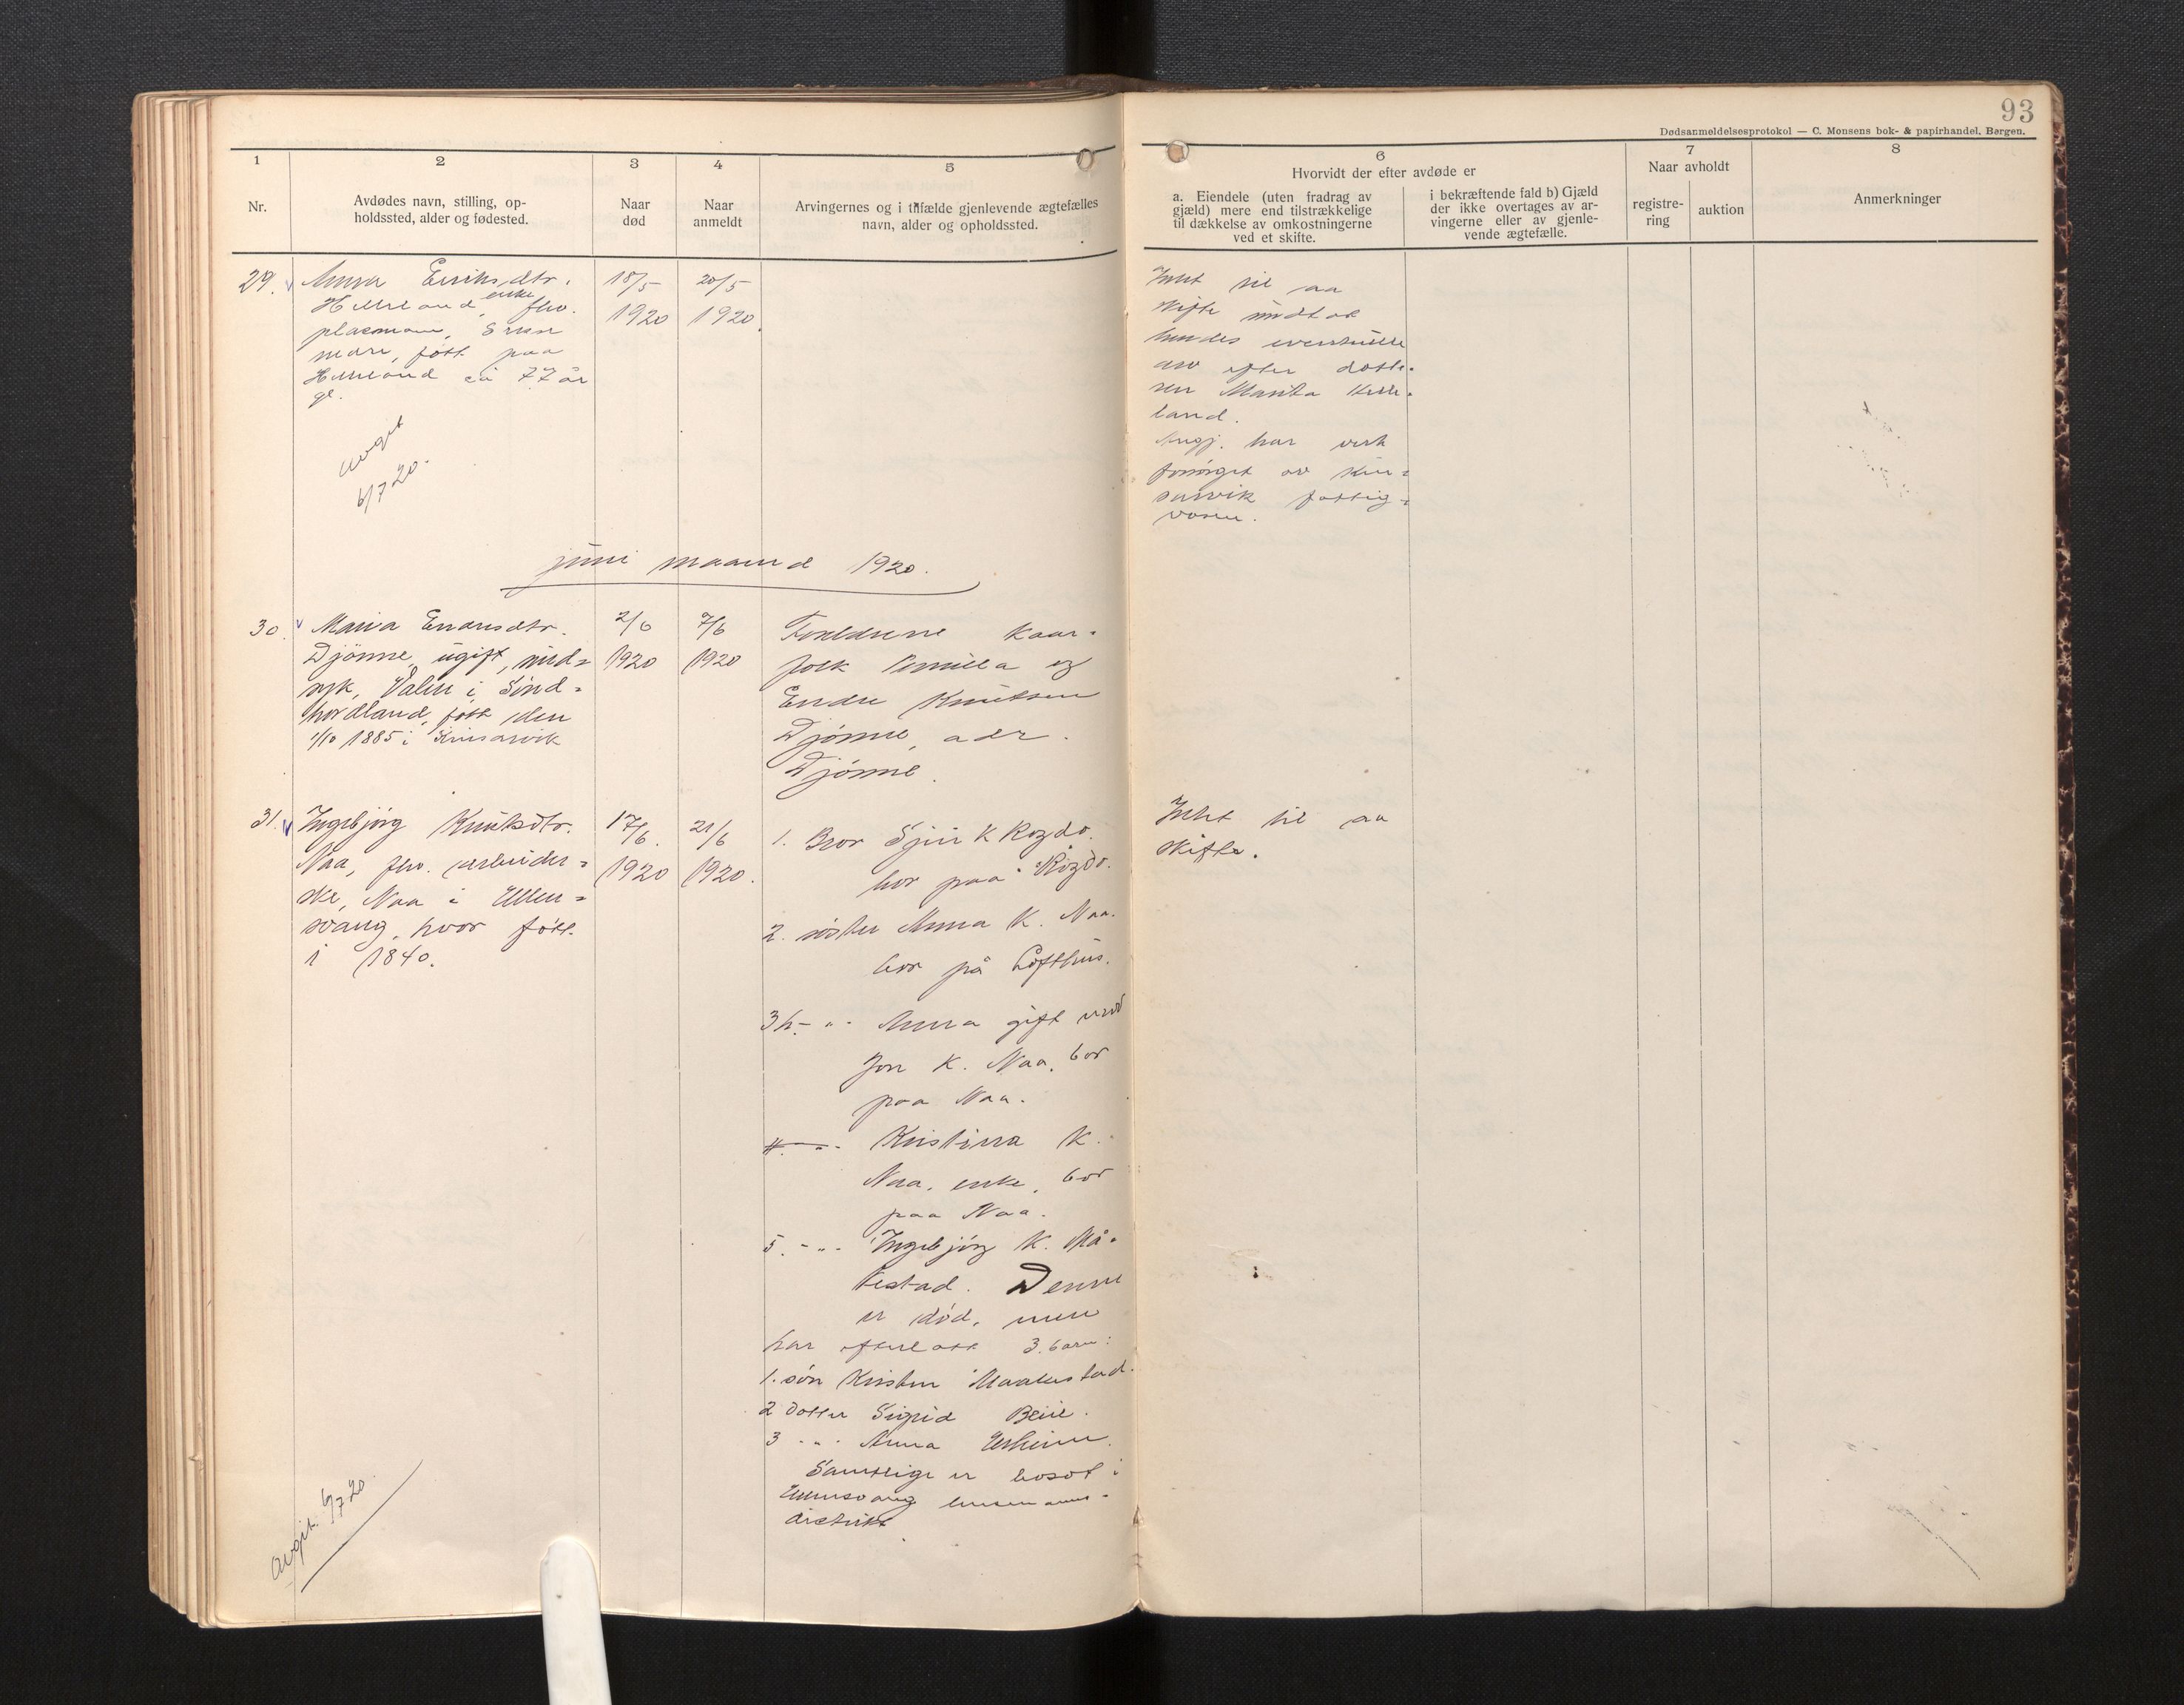 93
Dødsanmeldelsesprotokol — C. Monsens bok- & papirhandel, Bergen.
1 2 3 4 5
Nr.
Avdødes navn, stilling, op-
holdssted, alder og fødested.
Naar
død
Naar
anmeldt
Arvingernes og i tilfælde gjenlevende ægtefælles
navn, alder og opholdssted.
6
Hvorvidt der efter avdøde er
a. Eiendele (uten fradrag av
gjæld) mere end tilstrækkelige
til dækkelse av omkostningerne
ved et skifte.
i bekræftende fald b) Gjæld
der ikke overtages av ar-
vingerne eller av gjenle-
vende ægtefælle.
7
Naar avholdt
registre-
ring
auktion
8
Anmerkninger
29.
Anna Eriksdtr.
Helleland, enke, fhv.
plasmann,
nedre, født paa
Helleland ca 77 år
gl.
18/5
1920
20/5
1920.
Intet til aa
skifte undtak
hendes eventuelle
arv efter datte-
ren Marita Helle-
land.
har vert
forsørget av Kin-
sarvik fattig-
vesen.
avgit
6/7 20.
juni maaned 1920.
30.
Maria Endresdtr.
Djønne, ugift, sind=
syk, Valen i Sønd=
hordland, født den
1/10 1885 i Kinsarvik
2/6
1920
7/6
1920
Foreldrene kaar-
folk Gunilla og
Endre Knutsen
Djønne, adr.
Djønne.
31.
Ingebjørg Knutsdtr.
Naa, fhv. arbeider=
ske, Naa i Ullen=
svang, hvor født
i 1840.
17/6.
1920
21/6
1920.
1. Bror K Rogdo.
bor paa Rogdo.
2. søster Anna K. Naa.
bor på Lofthus.
3 h.- " - Anna gift med
Jon K. Naa, bor
paa Naa.
4. - " - Kristina K.
Naa, enke, bor
paa Naa.
5. - " - Ingebjørg K. Må-
kestad. Denne
er død, men
har efterlatt 3 barn:
1. søn Kristen Maakestad.
2 datter Sigrid Beiie.
3 - " - Anna Urheim.
Samtlige er bosat i
Ullensvang lensmanns-
distrikt.
Intet til aa
skifte.
avgit. 6/7 20